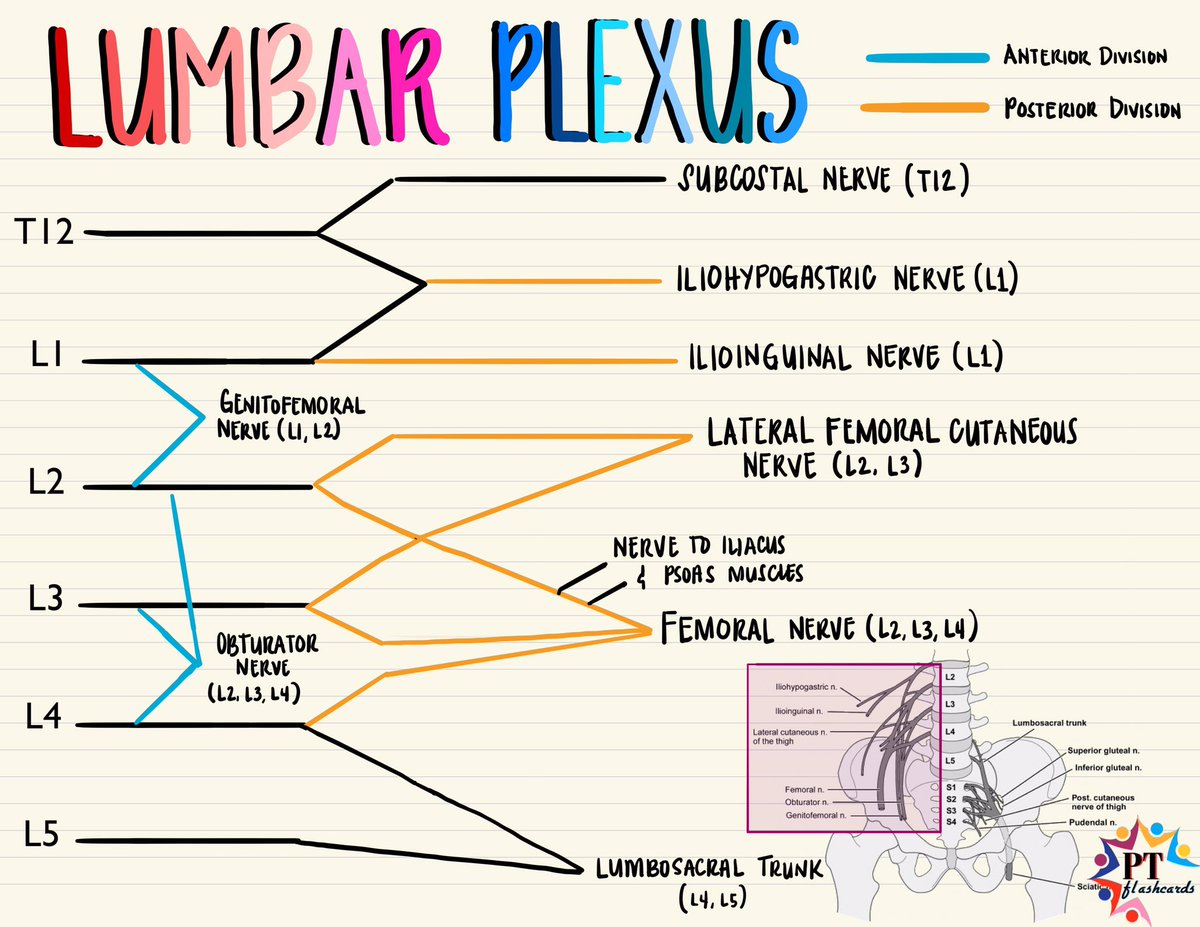 LUMBAR PLEXUS
ANTERIOR DIVISION
POSTERIOR DIVISION
SUBCOSTAL NERVE (T12)
T12
ILIOHYPOGASTRIC NERVE (L1)
L1
ILIOINGUINAL NERVE (L1)
GENITOFEMORAL
NERVE (L1, L2)
LATERAL FEMORAL CUTANEOUS
NERVE (L2, L3)
L2
NERVE TO ILIACUS
& PSOAS MUSCLES
L3
FEMORAL NERVE (L2, L3, L4)
OBTURATOR
NERVE
(L2, L3, L4)
L4
L5
LUMBOSACRAL TRUNK
(L4, L5)
Iliohypogastric n.
Ilioinguinal n.
Lateral cutaneous n.
of the thigh
Femoral n.
Obturator n.
Genitofemoral n.
L2
L3
L4
L5
S1
S2
S3
S4
Lumbosacral trunk
Superior gluteal n.
Inferior gluteal n.
Post. cutaneous
nerve of thigh
Pudendal n.
PT
flashcards